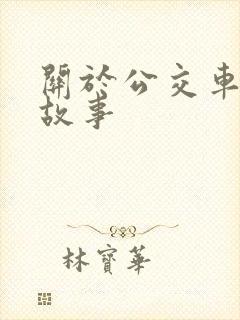 關於公交車
故事
林寶華